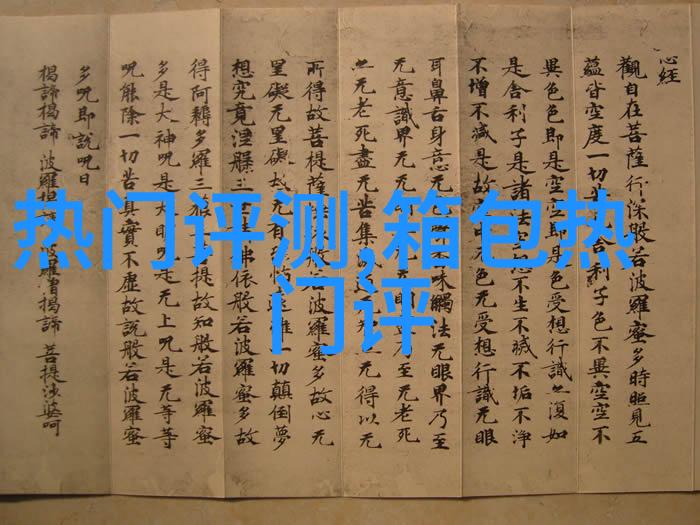 心经
觀自在菩薩行深般若波羅蜜多時照見五
蘊皆空度一切苦舍利子色不異空空不
異色色即是空空即是色受想行識亦復如
是舍利子是諸法空不生不滅不垢不淨
不增不減是故空色无受想行識无眼
耳鼻舌身意无色味觸法无眼界乃至
无意識界无无明乃至无老死
亦无老死盡无苦集滅道无得以无
所得故菩提薩般若波羅蜜多故心无
罣礙无罣礙故无有怖遠離一切顛倒夢
想究竟涅槃三佛依般若波羅蜜多故
得阿耨多羅三藐菩提故知般若波羅蜜
多是大神呪是大明呪是无上呪是无等等
呪能除一切苦真實不虛故說般若波羅蜜
多呪即說呪曰
揭諦揭諦 波羅揭諦 波羅僧揭諦 菩提莎婆呵
热门评测,箱包热
门评